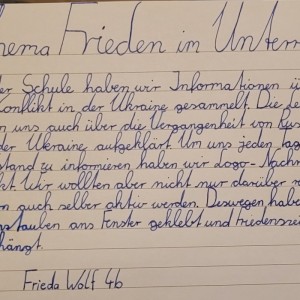 hema Frieden im Unterr
der Schule haben wir Informationen ü
Konflikt in der Ukraine gesammelt. Die
n uns auch über die Vergangenheit von Rus
der Ukraine aufgeklärt. Um uns jeden tag
stand zu informieren haben wir logo-Nachr
kt. Wir wollten aber nicht nur darüber
n auch selber aktiv werden. Deswegen habe
nstauben ans Fenster geklebt und friedensze
hängt.
Frieda Wolf 4b